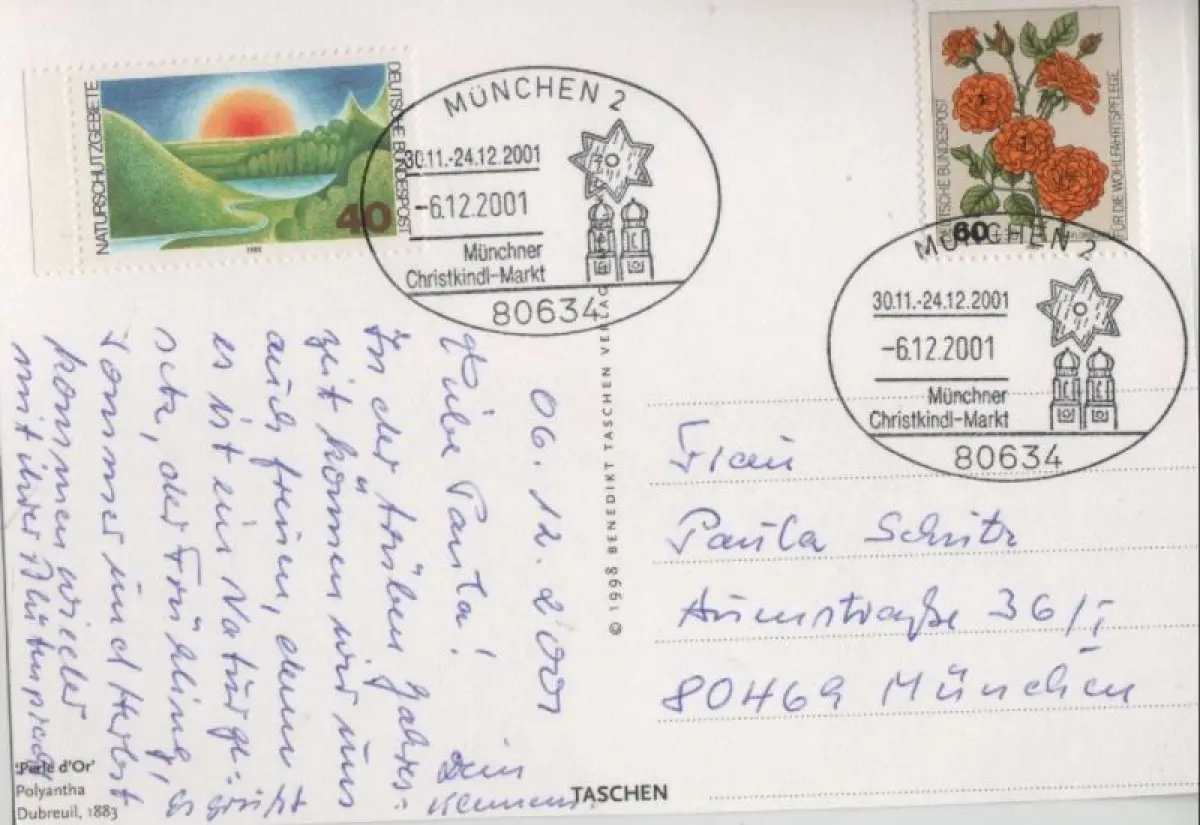 NATURSCHUTZGEBIETE
DEUTSCHE BUNDESPOST
40
MÜNCHEN 2
30.11.-24.12.2001
-6.12.2001
Münchner
Christkindl-Markt
80634
DEUTSCHE BUNDESPOST
60
FÜR DIE WOHLFAHRTSPFLEGE
MÜNCHEN 2
30.11.-24.12.2001
-6.12.2001
Münchner
Christkindl-Markt
80634
06.12.2001
Liebe Paula!
In der trüben Jahres-
zeit können wir uns
auch freuen, denn
es ist ein Naturge-
setz, der Frühling,
Sommer und Herbst
kommen wieder
mit ihrer Blütenpracht
Dein
© 1998 BENEDIKT TASCHEN VERLAG
Frau
Paula Schütz
36/I
80469 München
'Perle d'Or'
Polyantha
Dubreuil, 1883
TASCHEN